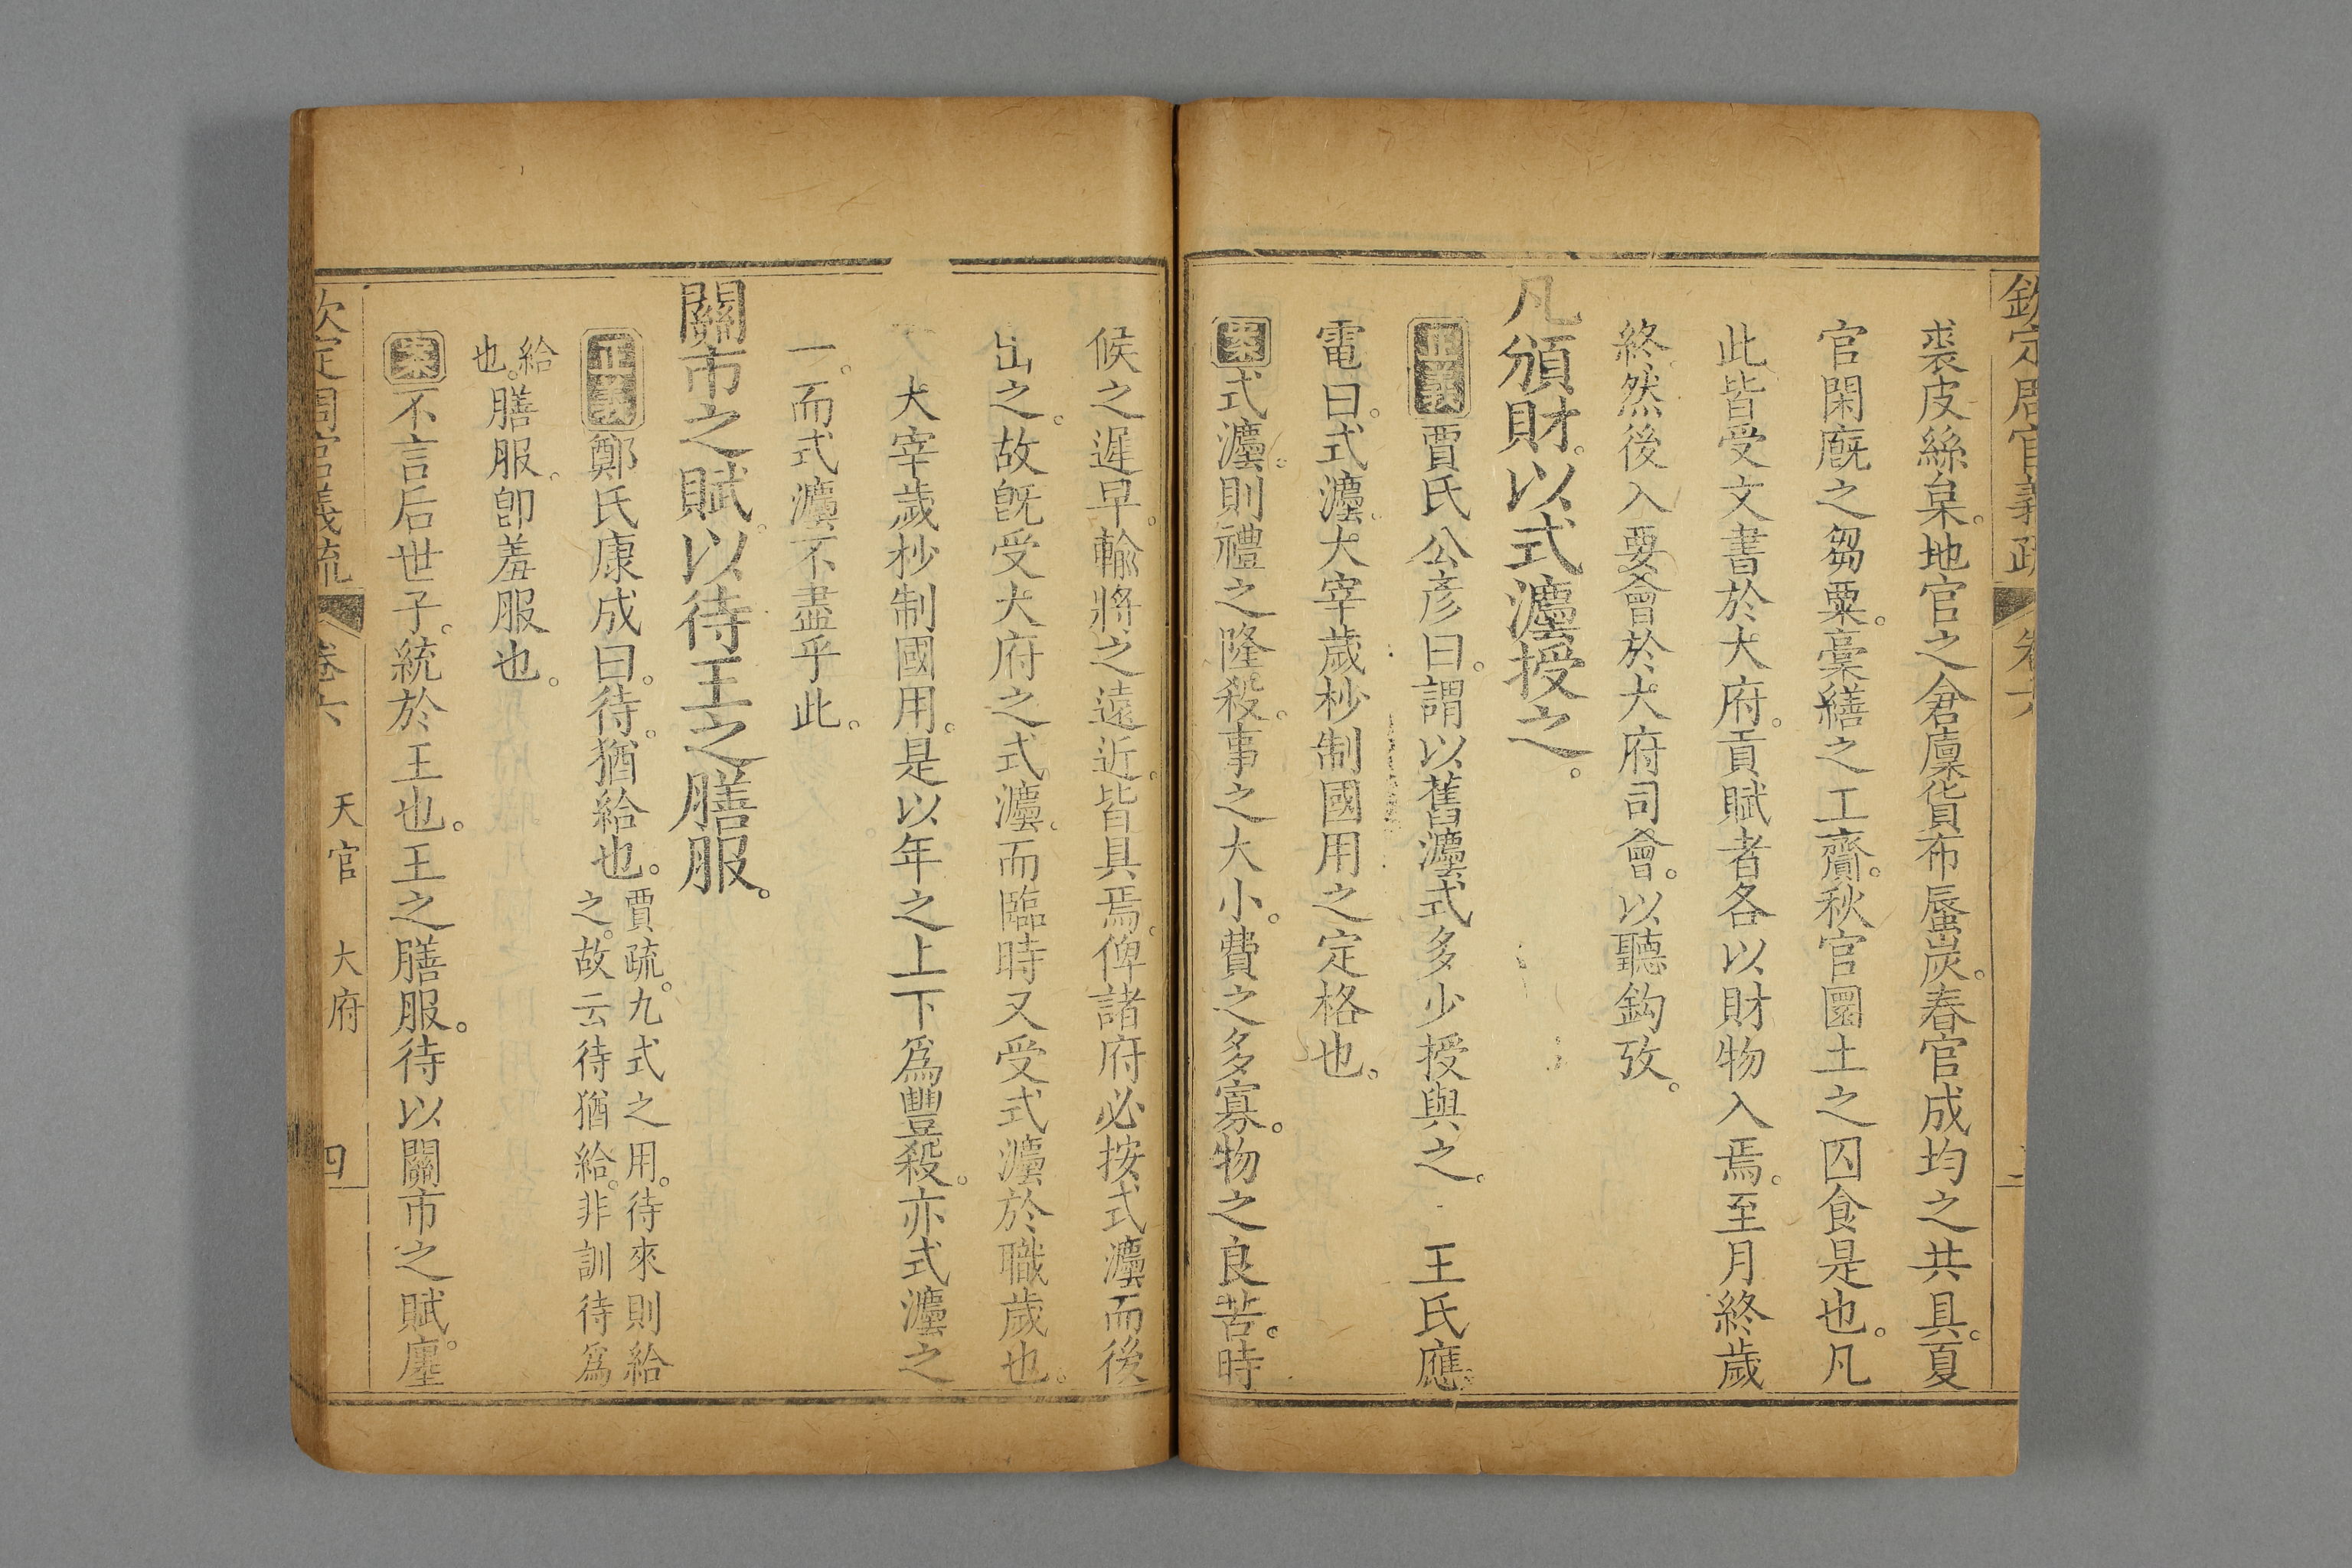 欽定周官義疏 卷六
裘皮絲枲。地官之倉廩貨布蜃炭。春官成均之共具。夏
官閑廐之芻粟。稾繕之工齎。秋官圜土之囚食是也。凡
此皆受文書於大府。貢賦者各以財物入焉。至月終歲
終。然後入要會於大府司會。以聽鈎攷。
凡頒財。以式灋授之。
正義賈氏公彥曰。謂以舊灋式多少授與之。 王氏應
電曰。式灋。大宰歲杪制國用之定格也。
案式灋。則禮之隆殺。事之大小。費之多寡。物之良苦。時
候之遲早。輸將之遠近。皆具焉。俾諸府必按式灋而後
出之。故旣受大府之式灋。而臨時又受式灋於職歲也。
大宰歲杪制國用。是以年之上下爲豐殺。亦式灋之
一。而式灋不盡乎此。
關市之賦。以待王之膳服。
正義鄭氏康成曰。待。猶給也。賈疏。九式之用。待來則給
之。故云待猶給。非訓待爲
給
也。膳服。卽羞服也。
案不言后世子。統於王也。王之膳服。待以關市之賦。廛
欽定周官義疏 卷六 天官 大府 四